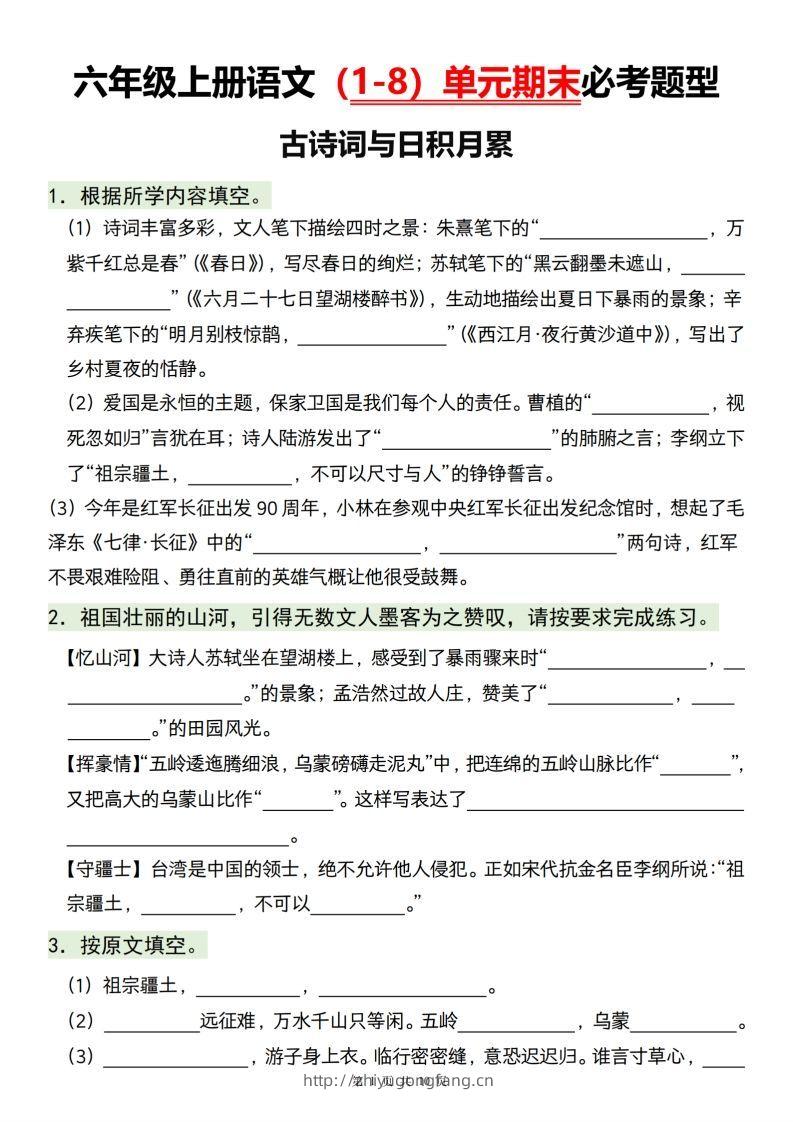 六年级上册语文（1-8）单元期末必考题型
古诗词与日积月累
1．根据所学内容填空。
（1）诗词丰富多彩，文人笔下描绘四时之景：朱熹笔下的“________________，万
紫千红总是春”（《春日》），写尽春日的绚烂；苏轼笔下的“黑云翻墨未遮山，______
__________”（《六月二十七日望湖楼醉书》），生动地描绘出夏日下暴雨的景象；辛
弃疾笔下的“明月别枝惊鹊，______________”（《西江月·夜行黄沙道中》），写出了
乡村夏夜的恬静。
（2）爱国是永恒的主题，保家卫国是我们每个人的责任。曹植的“___________，视
死忽如归”言犹在耳；诗人陆游发出了“________________”的肺腑之言；李纲立下
了“祖宗疆土，__________，不可以尺寸与人”的铮铮誓言。
（3）今年是红军长征出发 90 周年，小林在参观中央红军长征出发纪念馆时，想起了毛
泽东《七律·长征》中的“________________，_________________”两句诗，红军
不畏艰难险阻、勇往直前的英雄气概让他很受鼓舞。
2．祖国壮丽的山河，引得无数文人墨客为之赞叹，请按要求完成练习。
【忆山河】大诗人苏轼坐在望湖楼上，感受到了暴雨骤来时“_______________，__
_________________。”的景象；孟浩然过故人庄，赞美了“____________，____
________。”的田园风光。
【挥豪情】“五岭逶迤腾细浪，乌蒙磅礴走泥丸”中，把连绵的五岭山脉比作“_______”，
又把高大的乌蒙山比作“_______”。这样写表达了__________________________
_____________________。
【守疆士】台湾是中国的领士，绝不允许他人侵犯。正如宋代抗金名臣李纲所说：“祖
宗疆土，_________，不可以_________。”
3．按原文填空。
（1）祖宗疆土，__________，________________。
（2）_________远征难，万水千山只等闲。五岭___________，乌蒙__________。
（3）______________，游子身上衣。临行密密缝，意恐迟迟归。谁言寸草心，____
http://zhiyugongfang.cn